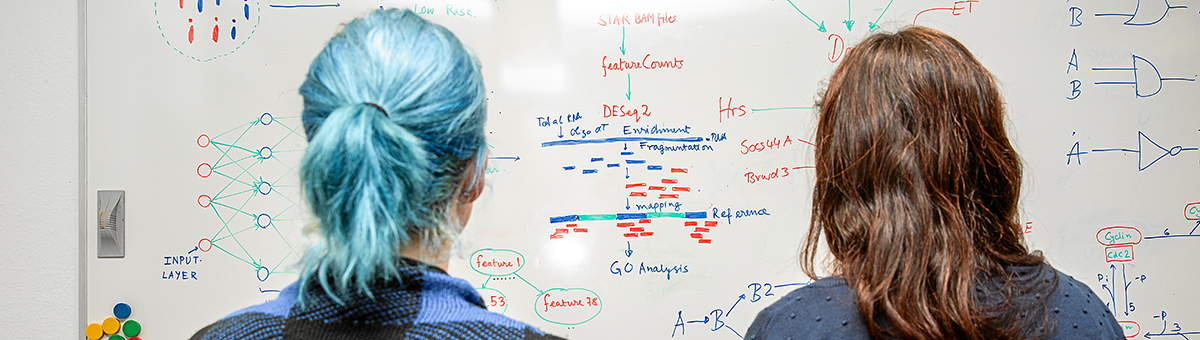 Low Risk.
INPUT-
LAYER
STAR BAM files
featureCounts
DESeq2
Total RNA
oligo dT Enrichment
Fragmentation
mapping
Reference
GO Analysis
feature 1
53
feature 78
A
B
B2
ET
Hrs
Socs44A
Brwd3
B
A
B
A
Cyclin
cdc2
6
Pi
-P
5
-P
3